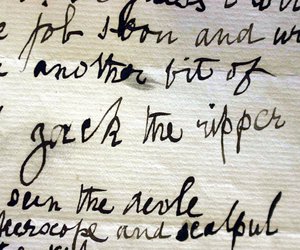 job soon and
another bit of
Jack the ripper
seen the devle
kerscope and scalpul